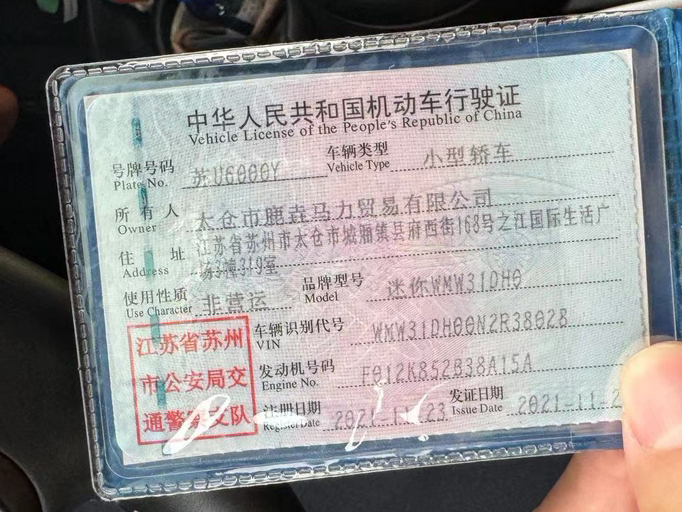 中华人民共和国机动车行驶证
Vehicle License of the People's Republic of China
号牌号码 Plate No. 苏U6000Y 车辆类型 Vehicle Type 小型轿车
所有人 Owner 太仓市鹿垚马力贸易有限公司
住址 Address 江苏省苏州市太仓市城厢镇县府西街168号之江国际生活广
场3幢319室
使用性质 Use Character 非营运 品牌型号 Model 迷你WMW31DH0
江苏省苏州
市公安局交
通警察支队
车辆识别代号 VIN WMW31DH00N2R38028
发动机号码 Engine No. F012K852B38A15A
注册日期 Register Date 2021-11-23 发证日期 Issue Date 2021-11-2